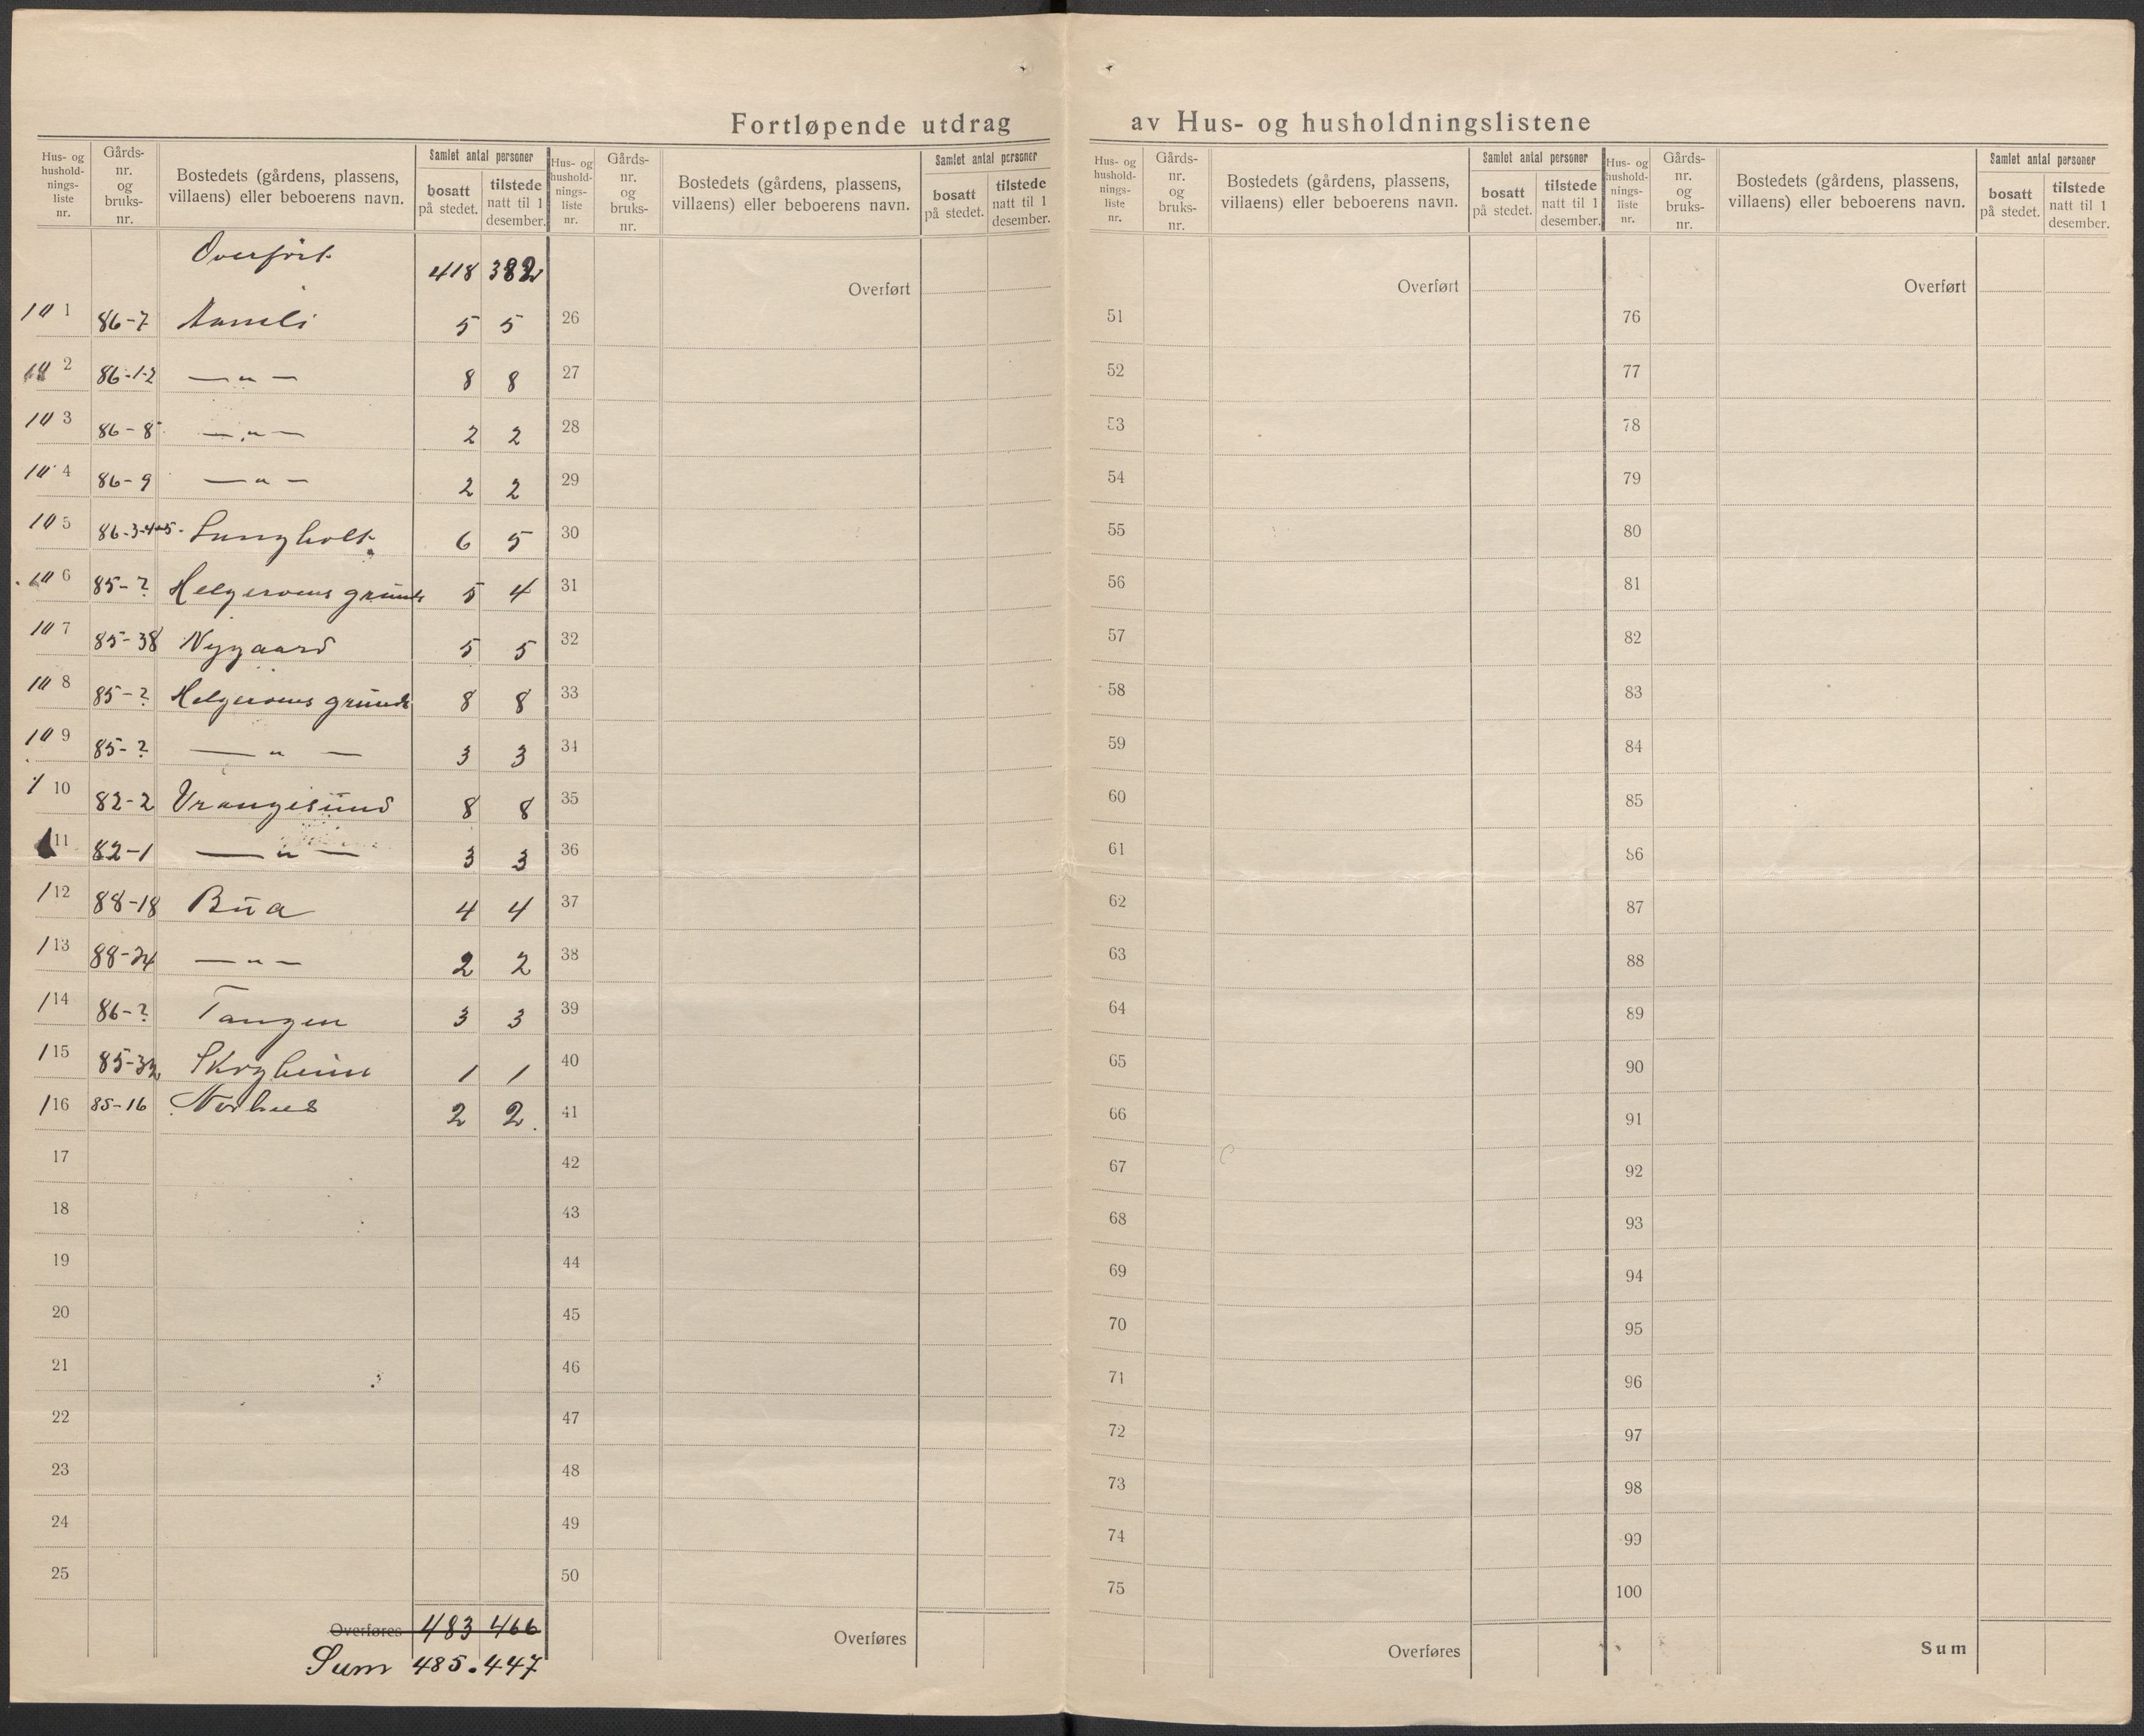 Fortløpende utdrag av Hus- og husholdningslistene
Hus- og hushold-nings-liste nr. | Gårds-nr. og bruks-nr. | Bostedets (gårdens, plassens, villaens) eller beboerens navn. | Samlet antal personer | bosatt på stedet. | tilstede natt til 1 desember.
Overført 418 382
101 86-7 Aamli 5 5
102 86-1-2 —„— 8 8
103 86-8 —„— 2 2
104 86-9 —„— 2 2
105 86-3-4+5- Lungholt 6 5
106 85-? Helgeroens grund 5 4
107 85-38 Nygaard 5 5
108 85-? Helgeroens grund 8 8
109 85-? —„— 3 3
110 82-2 Vrangesund 8 8
11 82-1 —„— 3 3
112 88-18 Bua 4 4
113 88-24 —„— 2 2
114 86-? Tangen 3 3
115 85-32 Skogheim 1 1
116 85-16 Norhus 2 2
17
18
19
20
21
22
23
24
25
Overføres 483 466
Sum 485. 447
Hus- og hushold-nings-liste nr. | Gårds-nr. og bruks-nr. | Bostedets (gårdens, plassens, villaens) eller beboerens navn. | Samlet antal personer | bosatt på stedet. | tilstede natt til 1 desember.
Overført
26
27
28
29
30
31
32
33
34
35
36
37
38
39
40
41
42
43
44
45
46
47
48
49
50
Overføres
Hus- og hushold-nings-liste nr. | Gårds-nr. og bruks-nr. | Bostedets (gårdens, plassens, villaens) eller beboerens navn. | Samlet antal personer | bosatt på stedet. | tilstede natt til 1 desember.
Overført
51
52
53
54
55
56
57
58
59
60
61
62
63
64
65
66
67
68
69
70
71
72
73
74
75
Overføres
Hus- og hushold-nings-liste nr. | Gårds-nr. og bruks-nr. | Bostedets (gårdens, plassens, villaens) eller beboerens navn. | Samlet antal personer | bosatt på stedet. | tilstede natt til 1 desember.
Overført
76
77
78
79
80
81
82
83
84
85
86
87
88
89
90
91
92
93
94
95
96
97
98
99
100
Sum